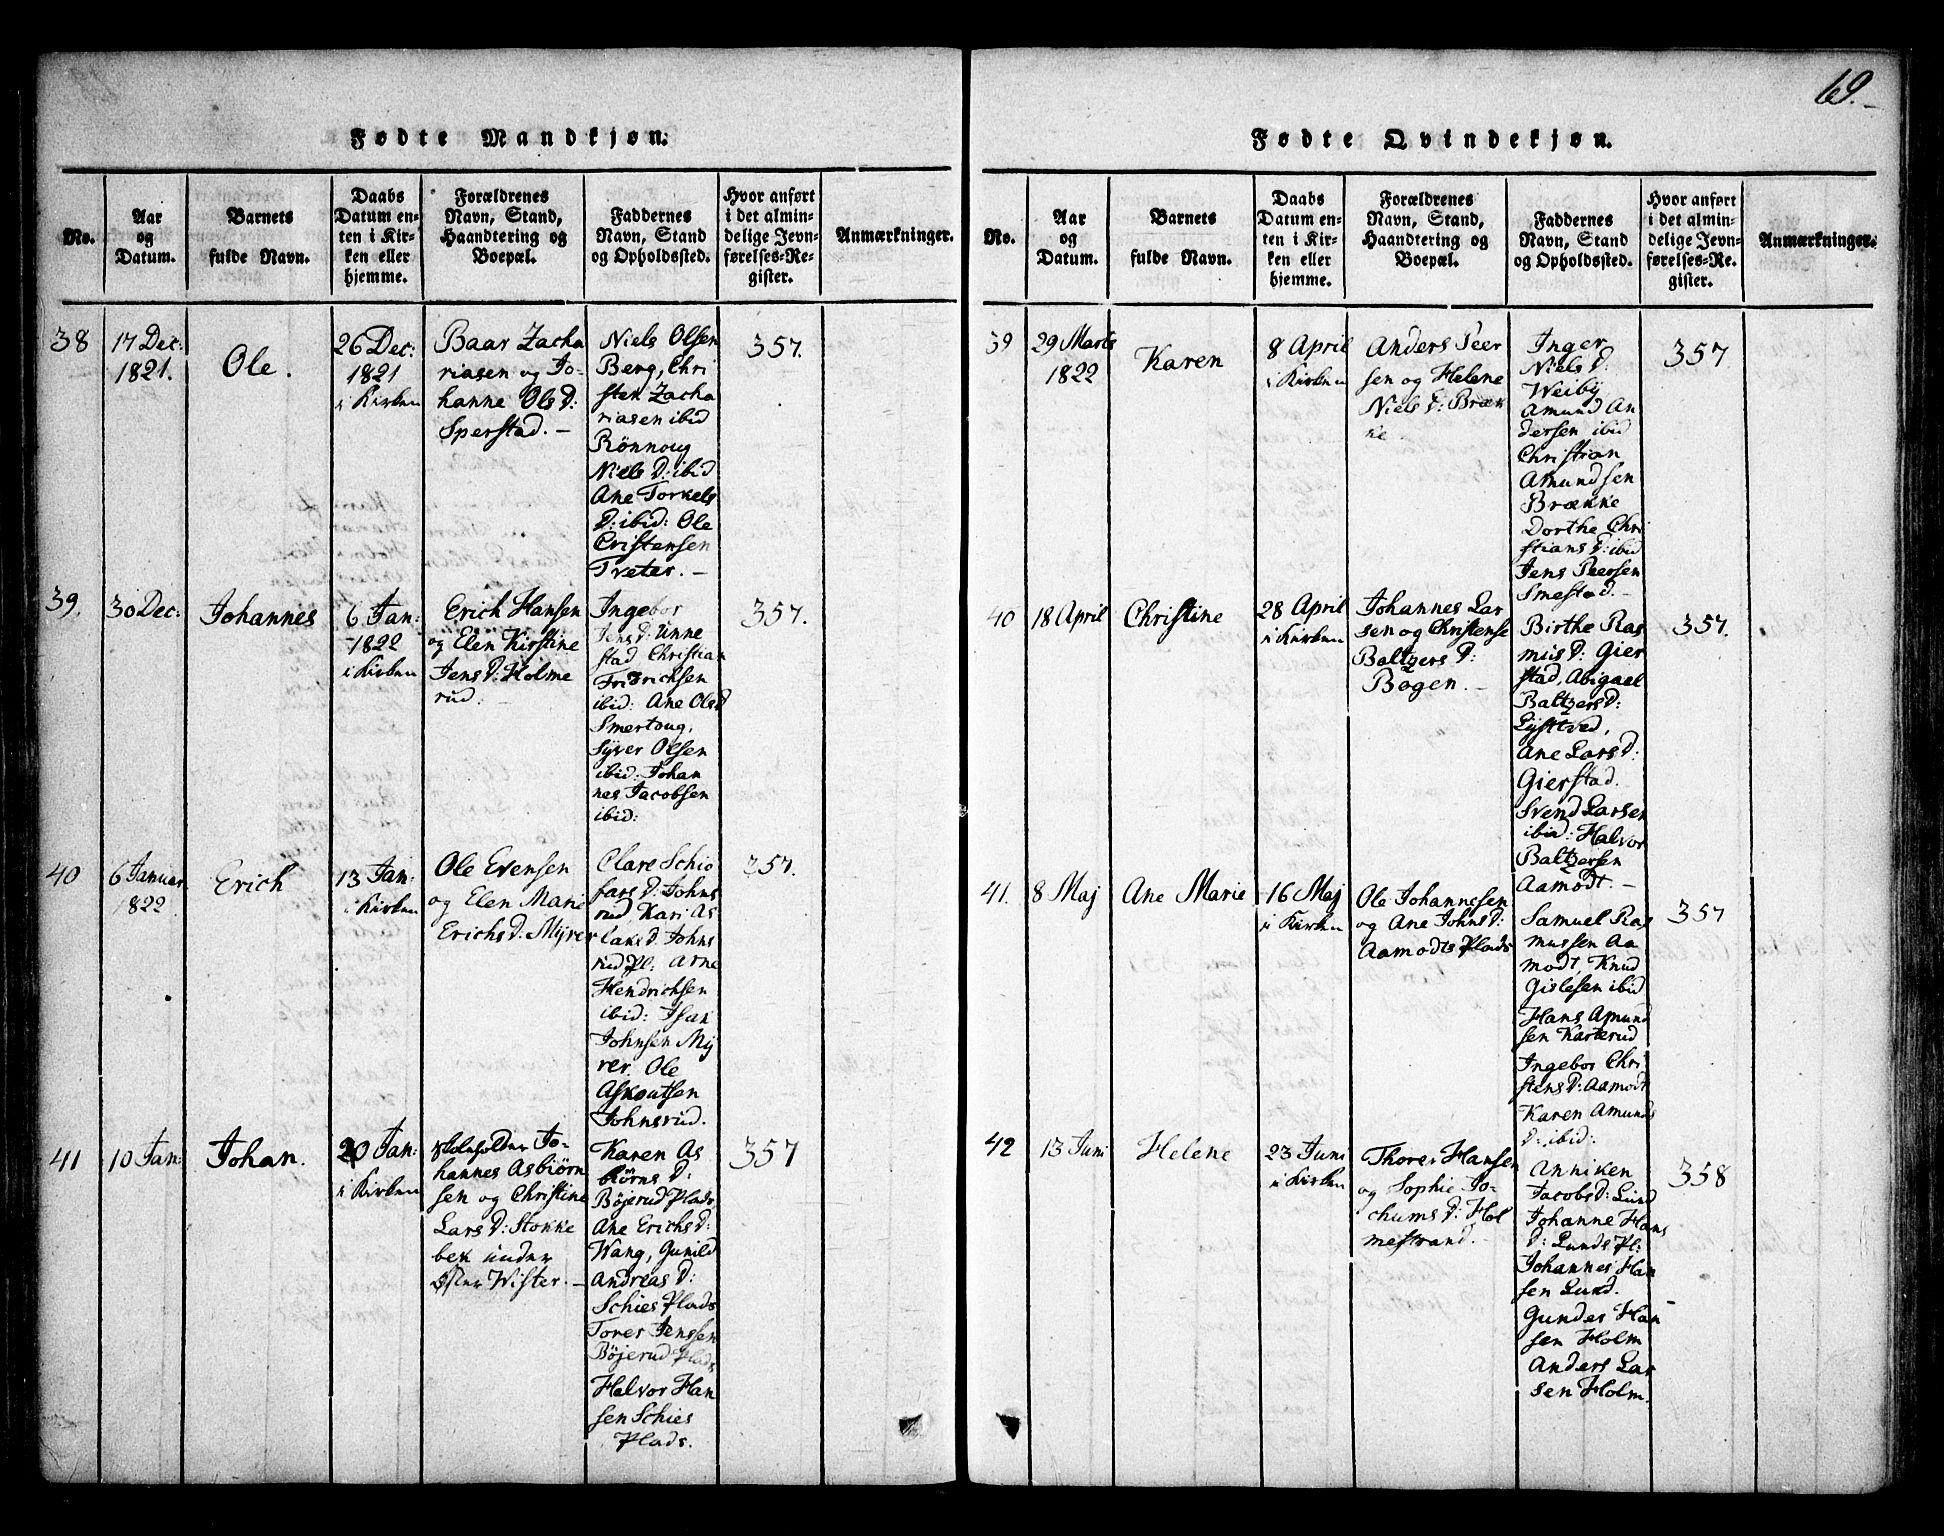 69.
Fødte Mandkjøn.
No.
Aar
og
Datum.
Barnets
fulde Navn.
Daabs
Datum en-
ten i Kir-
ken eller
hjemme.
Forældrenes
Navn, Stand,
Haandtering og
Boepæl.
Faddernes
Navn, Stand
og Opholdssted.
Hvor anført
i det almin-
delige Jevn-
førelses-Re-
gister.
Anmærkninger.
38
17 Dec:
1821.
Ole.
26 Dec:
1821
i Kirken
Baar Zacha
riasen og Jo-
hanne Ols D:
Sperstad. –
Niels Olsen
Berg, Chri
sten Zacha
riasen ibid
Rönnoug
Niels D: ibid
Ane Torkels
D: ibid: Ole
Cristensen
Tveter. –
357.
39.
30 Dec:
Johannes
6 Jan:
1822
i Kirken
Erich Hansen
og Elen Kirstine
Jens D: Holme
rud.
Ingebor
Jens D: Unne
stad Christian
Fridrichsen
ibid: Ane Ols D
Smertoug,
Syver Olsen
ibid: Johan
nes Jacobsen
ibid:
357.
40
6 Januar
1822
Erich
13 Jan:
i Kirken
Ole Evensen
og Elen Marie
Erichs D: Myrer
Clare Schio
fars D: Johns
rud Kari As
laks D: Johns
rud Pl: Arne
Hendrichsen
ibid: Isak
Johnsen My
rer. Ole
Askoutsen
Johnsrud.
357.
41
10 Jan:
Johan.
20 Jan:
i Kirken
Jo-
hannes Asbiørn
sen og Christine
Lars D: Stokke
bek under
Øster Wister. –
Karen As
biörns D:
Böjerud Plads,
Ane Erichs D:
Wang, Gunild
Andreas D:
Schies Plads
Tores Jenssen
Böjerud Plads
Halvor Han
sen Schies
Plads.
357
Fødte Qvindekjøn.
No.
Aar
og
Datum.
Barnets
fulde Navn.
Daabs
Datum en-
ten i Kir-
ken eller
hjemme.
Forældrenes
Navn, Stand,
Haandtering og
Boepæl.
Faddernes
Navn, Stand
og Opholdssted.
Hvor anført
i det almin-
delige Jevn-
førelses-Re-
gister.
Anmærkninger.
39
29 Marts
1822
Karen
8 April
i Kirken
Anders Peer
sen og Helene
Niels D: Bræk
ke.
Inger
Niels D:
Weiby
Amund An
dersen ibid
Christian
Amundsen
Brække
Dorthe Chri
stians D: ibid
Jens Peersen
Smestad. –
357
40
18 April
Christine
28 April
i Kirken
Johannes Lar
sen og Christense
Baltzers D:
Bogen. –
Birthe Ras
mus D: Gier
stad, Abigael
Baltzers D:
Lystved,
Ane Lars D:
Gierstad.
Svend Larsen
ibid: Halvor
Baltzersen
Aamodt. –
357.
41.
8 Maj
Ane Marie
16 Maj
i Kirken
Ole Johannesen
og Ane Johns D:
Aamodts Plads
Samuel Ras
mussen Aa
modt, Knud
Gislesen ibid
Hans Amund
sen Karterud
Ingebor Chri
stens D: Aamodt
Karen Amunds
D: ibid:
357
42
13 Juni
Helene
23 Juni
i Kirken
Thores Hansen
og Sophie Jo-
chums D: Hol
mestrand. –
Anniken
Jacobs D: Lund
Johanne Hans
D: Lunds Pl:
Johannes Han
sen Lund.
Gunder Han
sen Holm
Anders Lar
sen Holm.
358